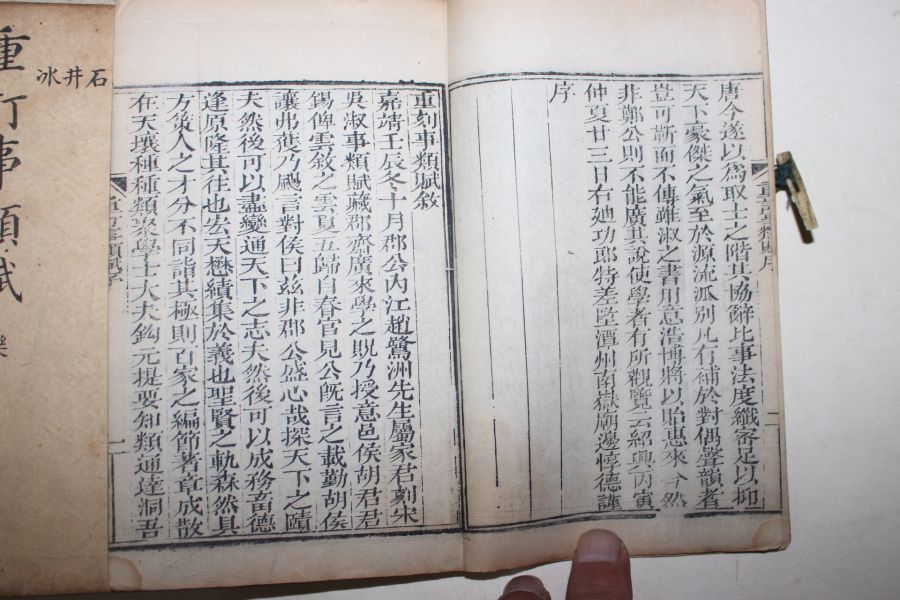 唐今遂以爲取士之階其協辭比事法度纖密足以抑
天下豪傑之氣至於源流派別凡有補於對偶聲韻者
豈可靳而不傳雖淑之書用意浩博將以貽惠來今然
非鄭公則不能廣其說使學者有所觀覽云紹興丙寅
仲夏廿三日右迪功郎特差監潭州南嶽廟邊惇德謹
序
重刻事類賦敘
嘉靖壬辰冬十月郡公內江趙鷺洲先生屬家君刻宋
吳淑事類賦藏郡齋廣來學之既乃授意邑侯胡君君
錫俾雲敘之雲夏五歸自春官見公旣言之載勤胡侯
讓弗獲乃颺言對侯曰玆非郡公盛心哉探天下之賾
夫然後可以盡變通天下之志夫然後可以成務畜德
逢原隆其往也宏天懋績集於義也聖賢之軌森然具
方策人之才分不同詣其極則百家之編節著章成散
在天壤種種類聚學士大夫鉤元提要知類通達洞吾
石井冰
重訂事類賦